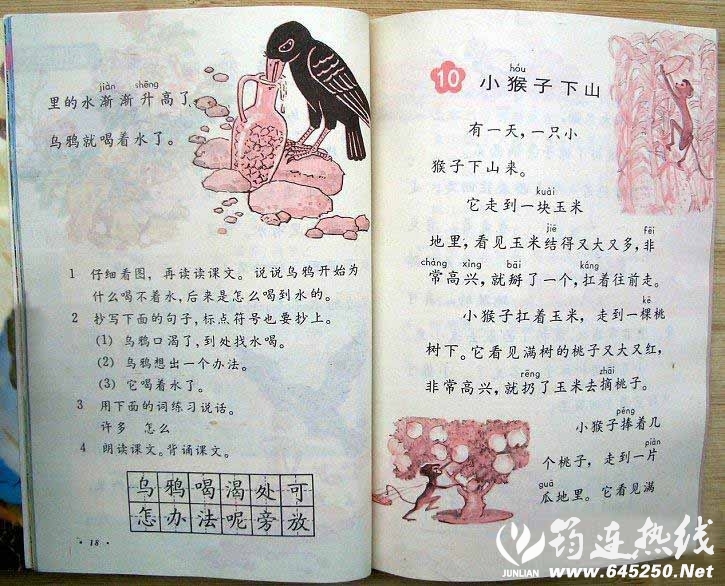 jiàn shēng
里的水渐渐升高了，
乌鸦就喝着水了。
1 仔细看图，再读读课文。说说乌鸦开始为
什么喝不着水，后来是怎么喝到水的。
2 抄写下面的句子，标点符号也要抄上。
(1) 乌鸦口渴了，到处找水喝。
(2) 乌鸦想出一个办法。
(3) 它喝着水了。
3 用下面的词练习说话。
许多 怎么
4 朗读课文。背诵课文。
乌鸦喝渴处可
怎办法呢旁放
·18·
hóu
10 小猴子下山
有一天，一只小
猴子下山来。
kuài
它走到一块玉米
jiē fēi
地里，看见玉米结得又大又多，非
cháng xìng bāi káng
常高兴，就掰了一个，扛着往前走。
kē
小猴子扛着玉米，走到一棵桃
树下。它看见满树的桃子又大又红，
rēng zhāi
非常高兴，就扔了玉米去摘桃子。
pěng
小猴子捧着几
piàn
个桃子，走到一片
guā
瓜地里。它看见满
筠连热线
JUNLIAN
www.645250.Net